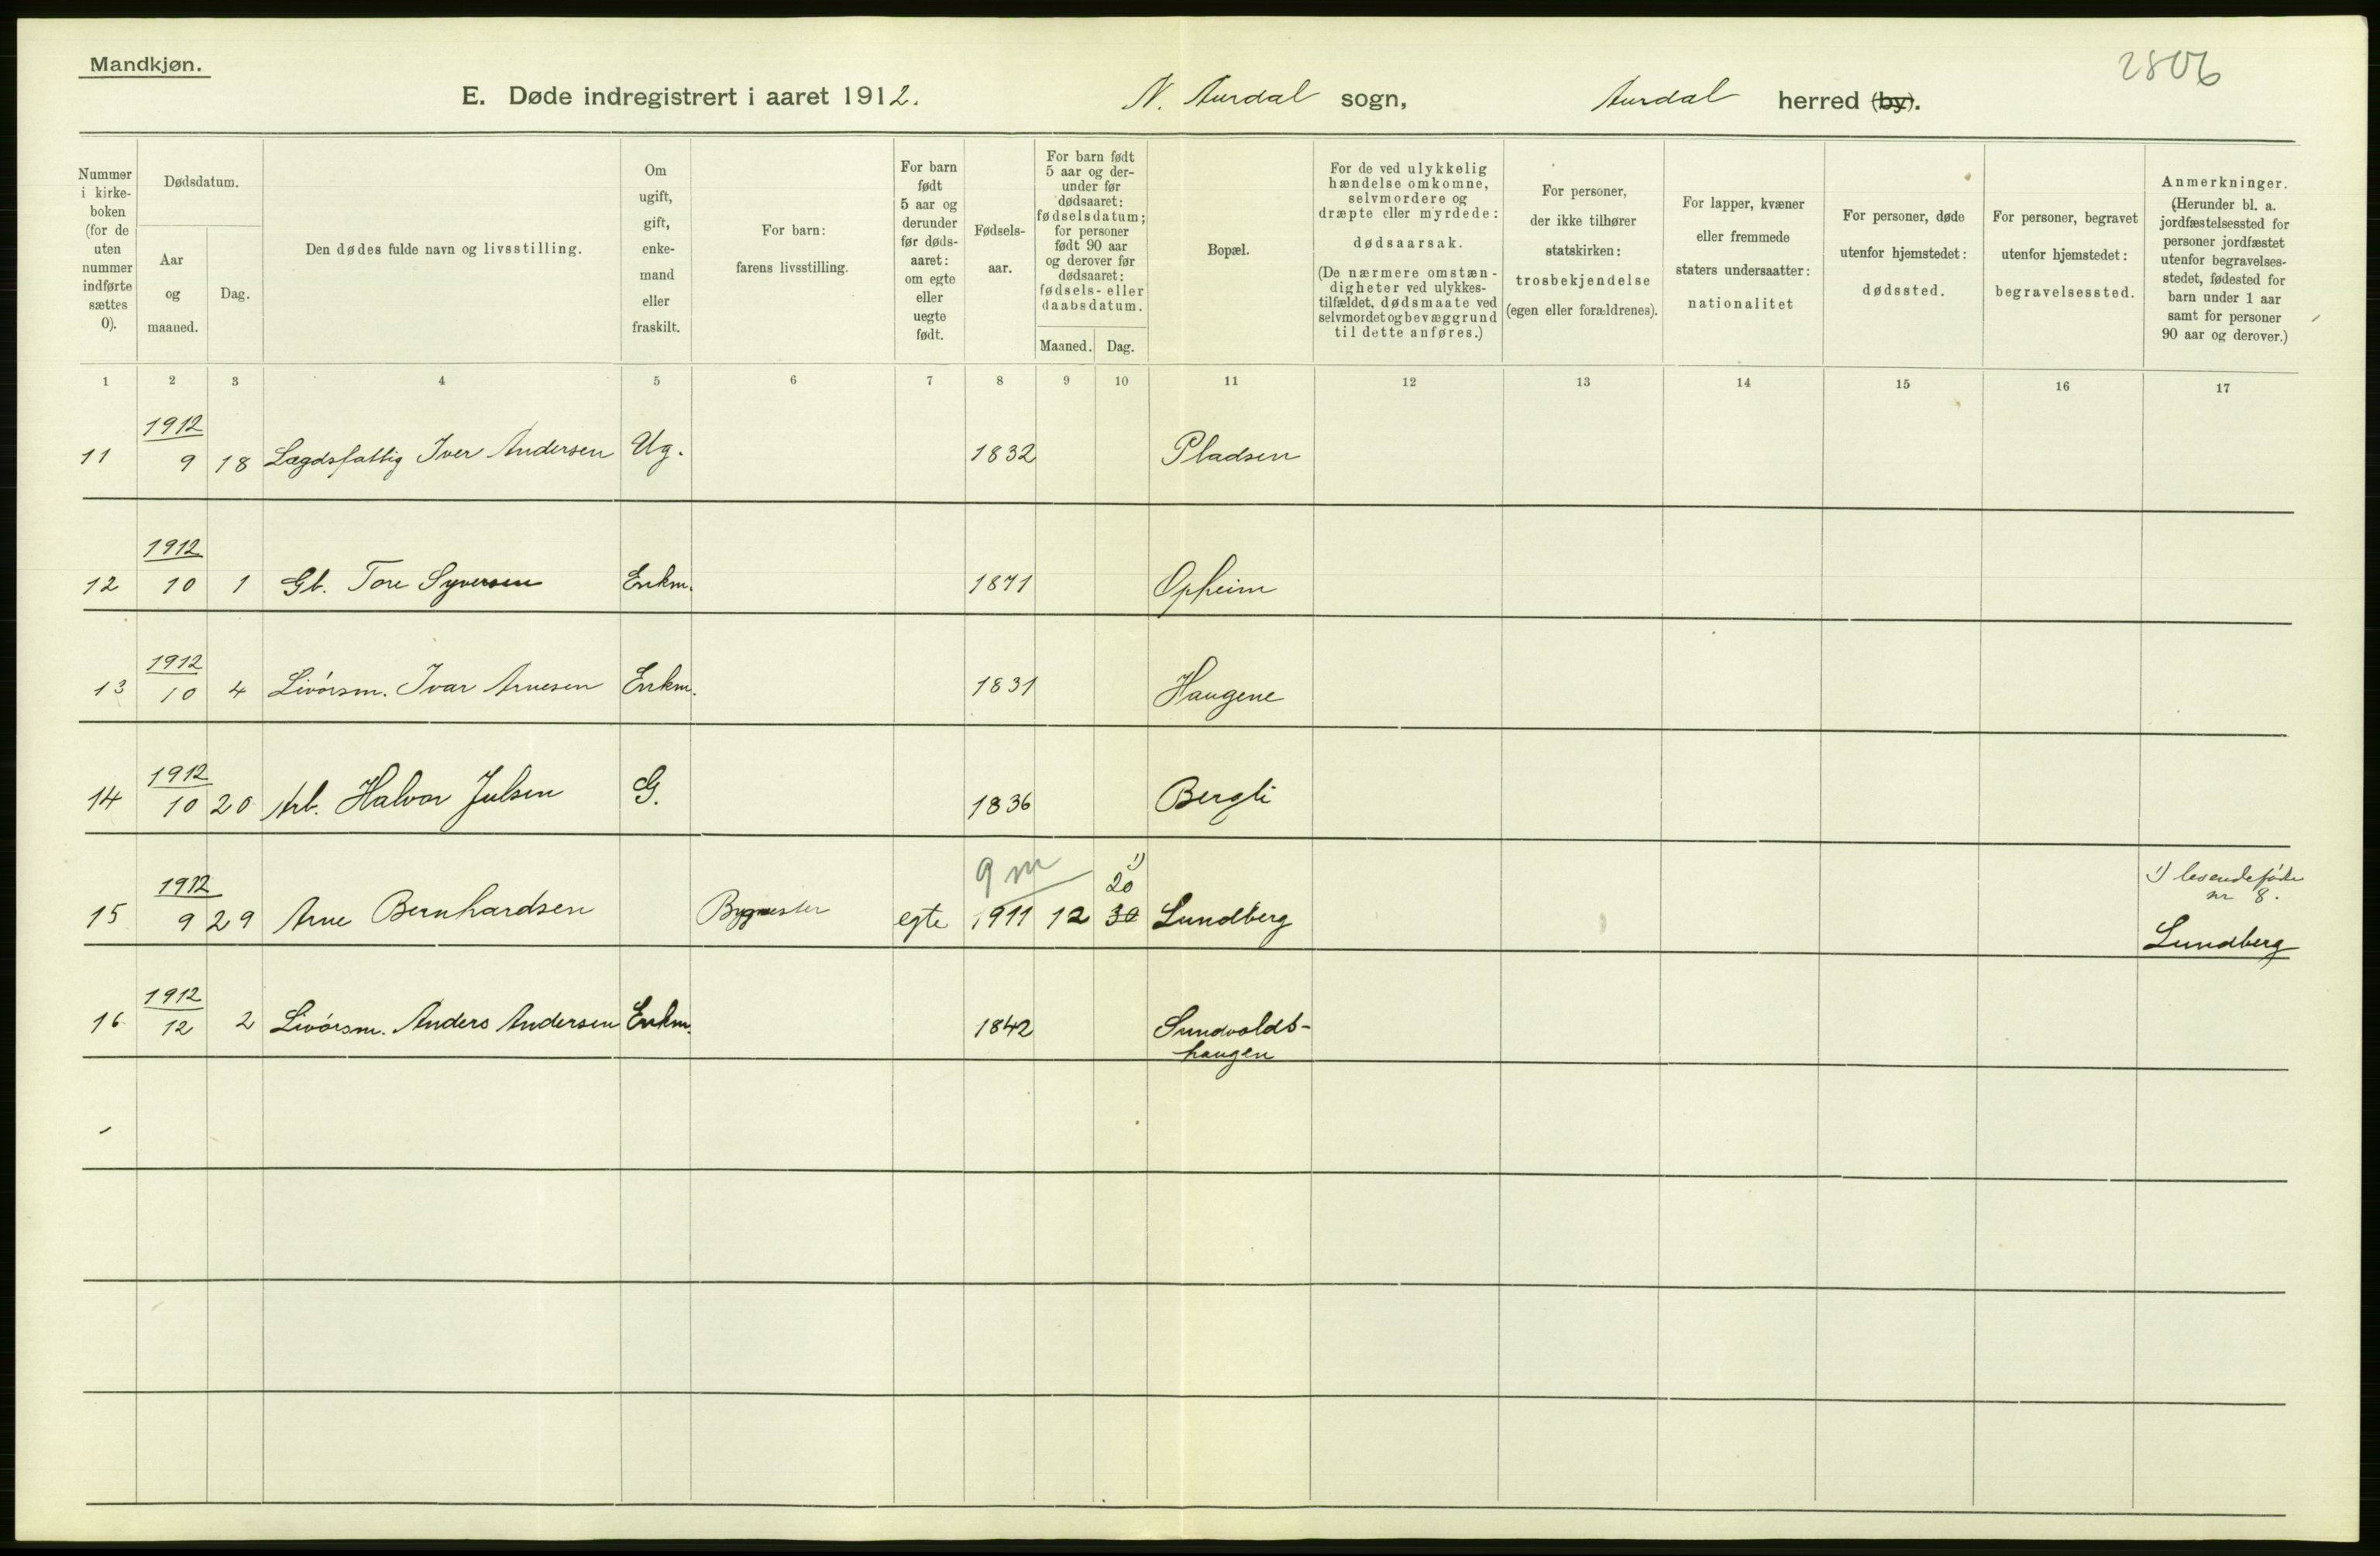 Mandkjøn.
2806
E. Døde indregistrert i aaret 1912. N. Aurdal sogn, Aurdal herred (by).
Nummer i kirke-boken (for de uten nummer indførte sættes 0).
Dødsdatum.
Aar og maaned.
Dag.
Den dødes fulde navn og livsstilling.
Om ugift, gift, enke-mand eller fraskilt.
For barn: farens livsstilling.
For barn født 5 aar og derunder før døds-aaret: om egte eller uegte født.
Fødsels-aar.
For barn født 5 aar og der-under før dødsaaret: fødselsdatum; for personer født 90 aar og derover før dødsaaret: fødsels- eller daabsdatum.
Maaned. Dag.
Bopæl.
For de ved ulykkelig hændelse omkomne, selvmordere og dræpte eller myrdede: dødsaarsak. (De nærmere omstæn-digheter ved ulykkes-tilfældet, dødsmaate ved selvmordet og bevæggrund til dette anføres.)
For personer, der ikke tilhører statskirken: trosbekjendelse (egen eller forældrenes).
For lapper, kvæner eller fremmede staters undersaatter: nationalitet
For personer, døde utenfor hjemstedet: dødssted.
For personer, begravet utenfor hjemstedet: begravelsessted.
Anmerkninger. (Herunder bl. a. jordfæstelsessted for personer jordfæstet utenfor begravelses-stedet, fødested for barn under 1 aar samt for personer 90 aar og derover.)
1 2 3 4 5 6 7 8 9 10 11 12 13 14 15 16 17
1912
11 9 18 Lægdsfattig Iver Andersen Ug. 1832 Pladsen
1912
12 10 1 Gb. Tore Syversen Enkm. 1871 Opheim
1912
13 10 4 Livórsm. Ivar Arnesen Enkm. 1831 Haugene
1912
14 10 20 Arb. Halvor Julsen G. 1836 Bergli
1912 9 m 1) 20 1)
nr 8.
15 9 29 Arne Bernhardsen Bygmester egte 1911 12 30 Lundberg Lundberg
1912
16 12 2 Livórsm. Anders Andersen Enkm. 1842 Sundvolds-
haugen